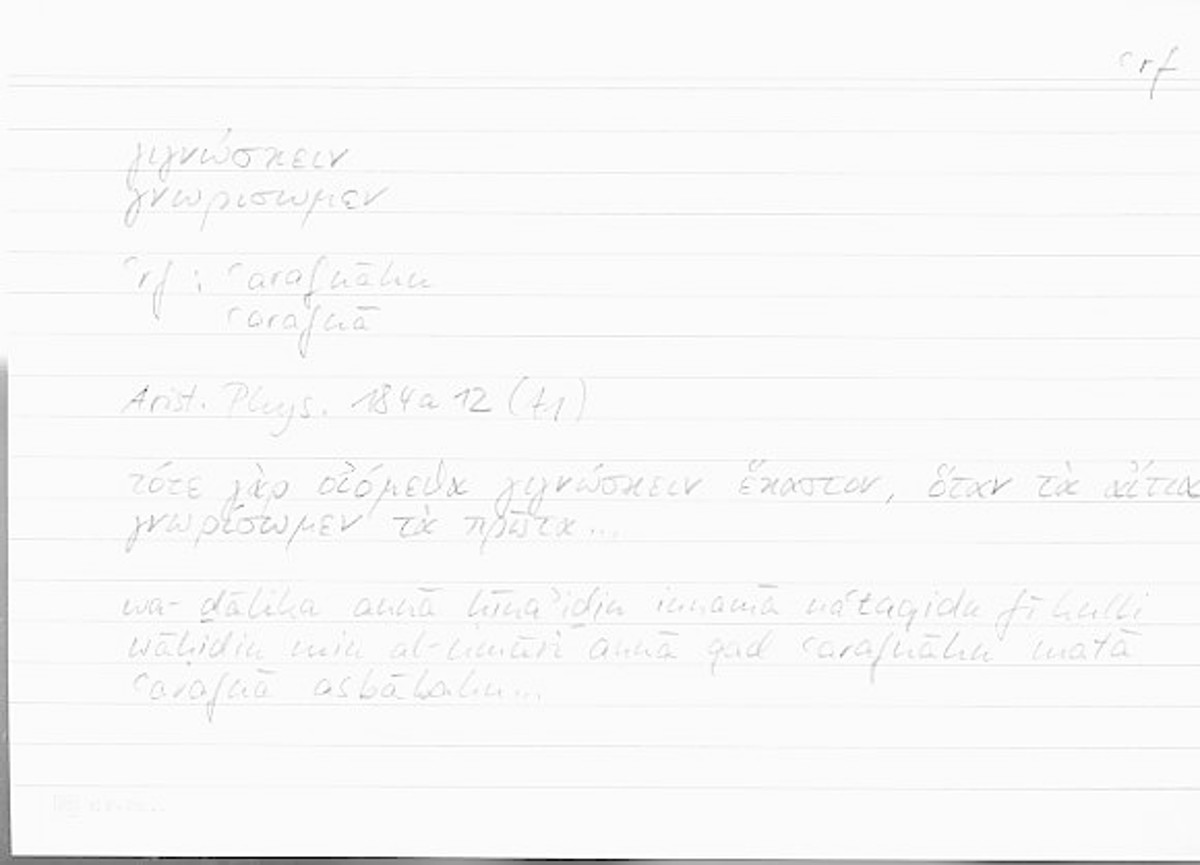 ʿrf
γιγνώσκειν
γνωρισωμεν
ʿrf : ʿarafnāhu
ʿarafnā
Arist. Phys. 184a 12 (A1)
τότε γὰρ οἰόμεθα γιγνώσκειν ἕκαστον, ὅταν τὰ αἴτια
γνωρίσωμεν τὰ πρῶτα...
wa- ḏālika annā ḥīnaʾiḏin innamā naʿtaqidu fī kulli
wāḥidin min al-umūri annā qad ʿarafnāhu matā
ʿarafnā asbābahu...